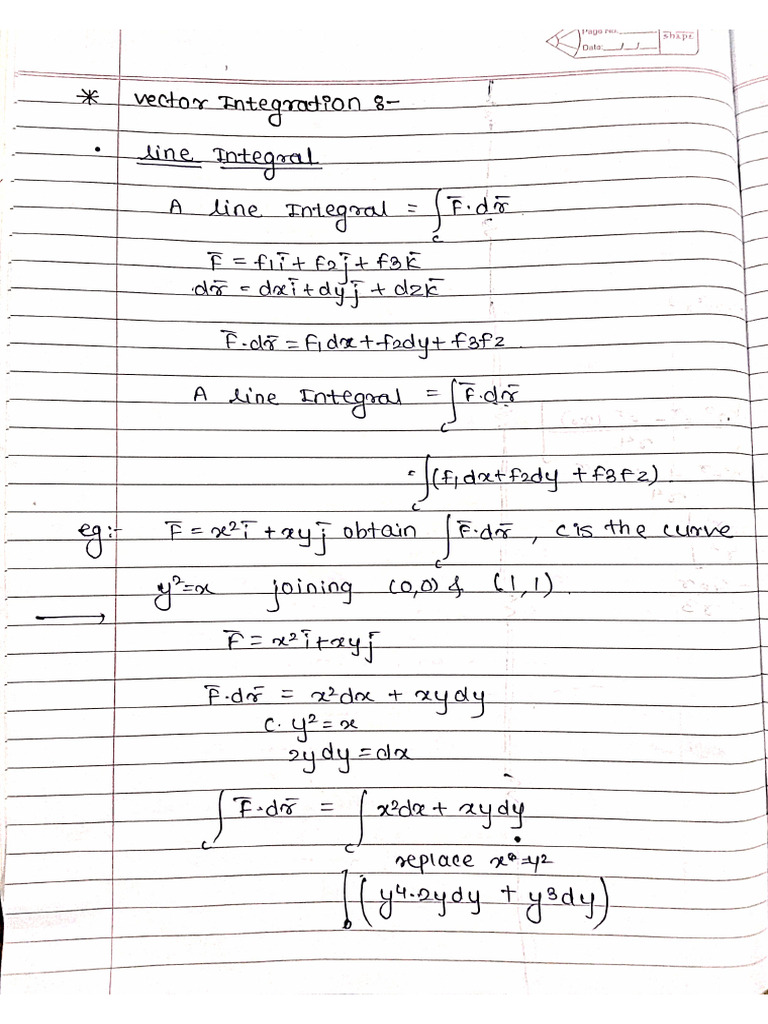 Page No.
Date: __/__/__
shape
* vector Integration :-
• line Integral
A line Integral = ∫_c F̄·dr̄
F̄ = f1ī + f2j̄ + f3k̄
dr̄ = dxī + dyj̄ + dzk̄
F̄·dr̄ = f1dx + f2dy + f3fz
A line Integral = ∫_c F̄·dr̄
= ∫_c (f1dx + f2dy + f3fz)
eg:- F̄ = x²ī + xyj̄ obtain ∫_c F̄·dr̄, c is the curve
y² = x joining (0,0) & (1,1).
→ F̄ = x²ī + xyj̄
F̄·dr̄ = x²dx + xydy
c. y² = x
2ydy = dx
∫_c F̄·dr̄ = ∫_c x²dx + xydy
replace x = y²
∫ (y⁴·2ydy + y³dy)